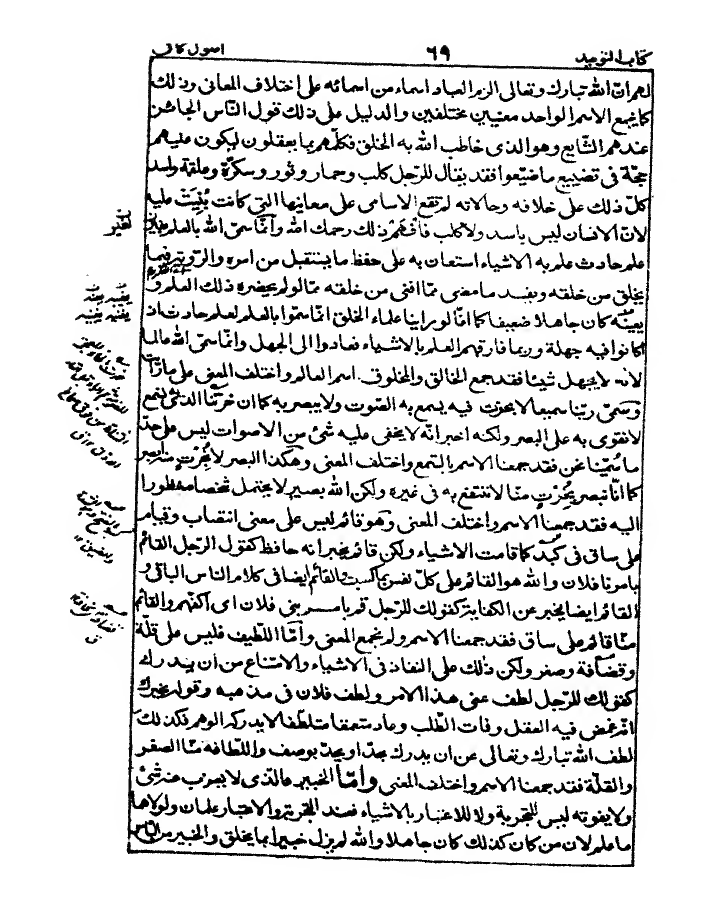 كتاب التوحيد ٦٩ اصول كافى
لهم انّ الله تبارك وتعالى الزم العباد اسماء من اسمائه على اختلاف المعانى وذلك
كما يجمع الاسم الواحد معنيين مختلفين والدليل على ذلك قول الناس الجائز
عندهم الشّايع وهو الذى خاطب الله به الخلق فكلّمهم بما يعقلون ليكون عليهم
حجّة فى تضييع ما ضيّعوا فقد يقال للرّجل كلب وحمار وثور وسكرّة وعلقة واسد
كلّ ذلك على خلافه وحالاته لم تقع الاسامى على معانيها التى كانت بُنِيَت عليه
لانّ الانسان ليس باسد ولا كلب فافهم ذلك رحمك الله وانّما سمّى الله بالعلم بغير
علم حادث علم به الاشياء استعان به على حفظ ما يستقبل من امره والرّويّة فيما
يخلق من خلقه ويفسد ما مضى ممّا افنى من خلقه ممّا لو لم يحضره ذلك العلم و
يعينه كان جاهلا ضعيفا كما انّا لو راينا علماء الخلق انّما سمّوا بالعلم لعلم حادث اذ
كانوا فيه جهلة وربما فارقهم العلم بالاشياء فعادوا الى الجهل وانّما سمّى الله عالما
لانه لا يجهل شيئا فقد جمع الخالق والمخلوق اسم العالم واختلف المعنى على ما رأيت
وسمّى ربّنا سميعا لا بخرت فيه يسمع به الصّوت ولا يبصر به كما ان خرتنا الذى به نسمع
لا نقوى به على البصر ولكنه اخبر انّه لا يخفى عليه شئ من الاصوات ليس على حدّ
ما سمّينا نحن فقد جمعنا الاسم بالسّمع واختلف المعنى وهكذا البصر لا بخرت منه ابصر
كما انّا نبصر بخرت منّا لا ننتفع به فى غيره ولكن الله بصير لا يحتمل شخصا منظورا
اليه فقد جمعنا الاسم واختلف المعنى وهو قائم ليس على معنى انتصاب وقيام
على ساق فى كبد كما قامت الاشياء ولكن قائم يخبر انه حافظ كقول الرّجل القائم
بامرنا فلان والله هو القائم على كلّ نفس بما كسبت والقائم ايضا فى كلام الناس الباقى و
القائم ايضا يخبر عن الكفاية كقولك للرّجل قم بامر بنى فلان اى اكفهم والقائم
منّا قائم على ساق فقد جمعنا الاسم ولم نجمع المعنى وامّا اللّطيف فليس على قلّة
وقضافة وصغر ولكن ذلك على النفاذ فى الاشياء والامتناع من ان يدرك
كقولك للرّجل لطف عنى هذا الامر ولطف فلان فى مذهبه وقوله يخبرك
انّه غمض فيه العقل وفات الطّلب وعاد متعمقا متلطّفا لا يدركه الوهم فكذلك
لطف الله تبارك وتعالى عن ان يدرك بحدّ او يحدّ بوصف واللّطافه منّا الصغر
والقلّة فقد جمعنا الاسم واختلف المعنى وامّا الخبير فالذى لا يعزب عنه شئ
ولا يفوته ليس للتجربة ولا للاعتبار بالاشياء فعند التجربة والاعتبار علمان ولولاهما
ما علم لان من كان كذلك كان جاهلا والله لم يزل خبيرا بما يخلق والخبير من الناس